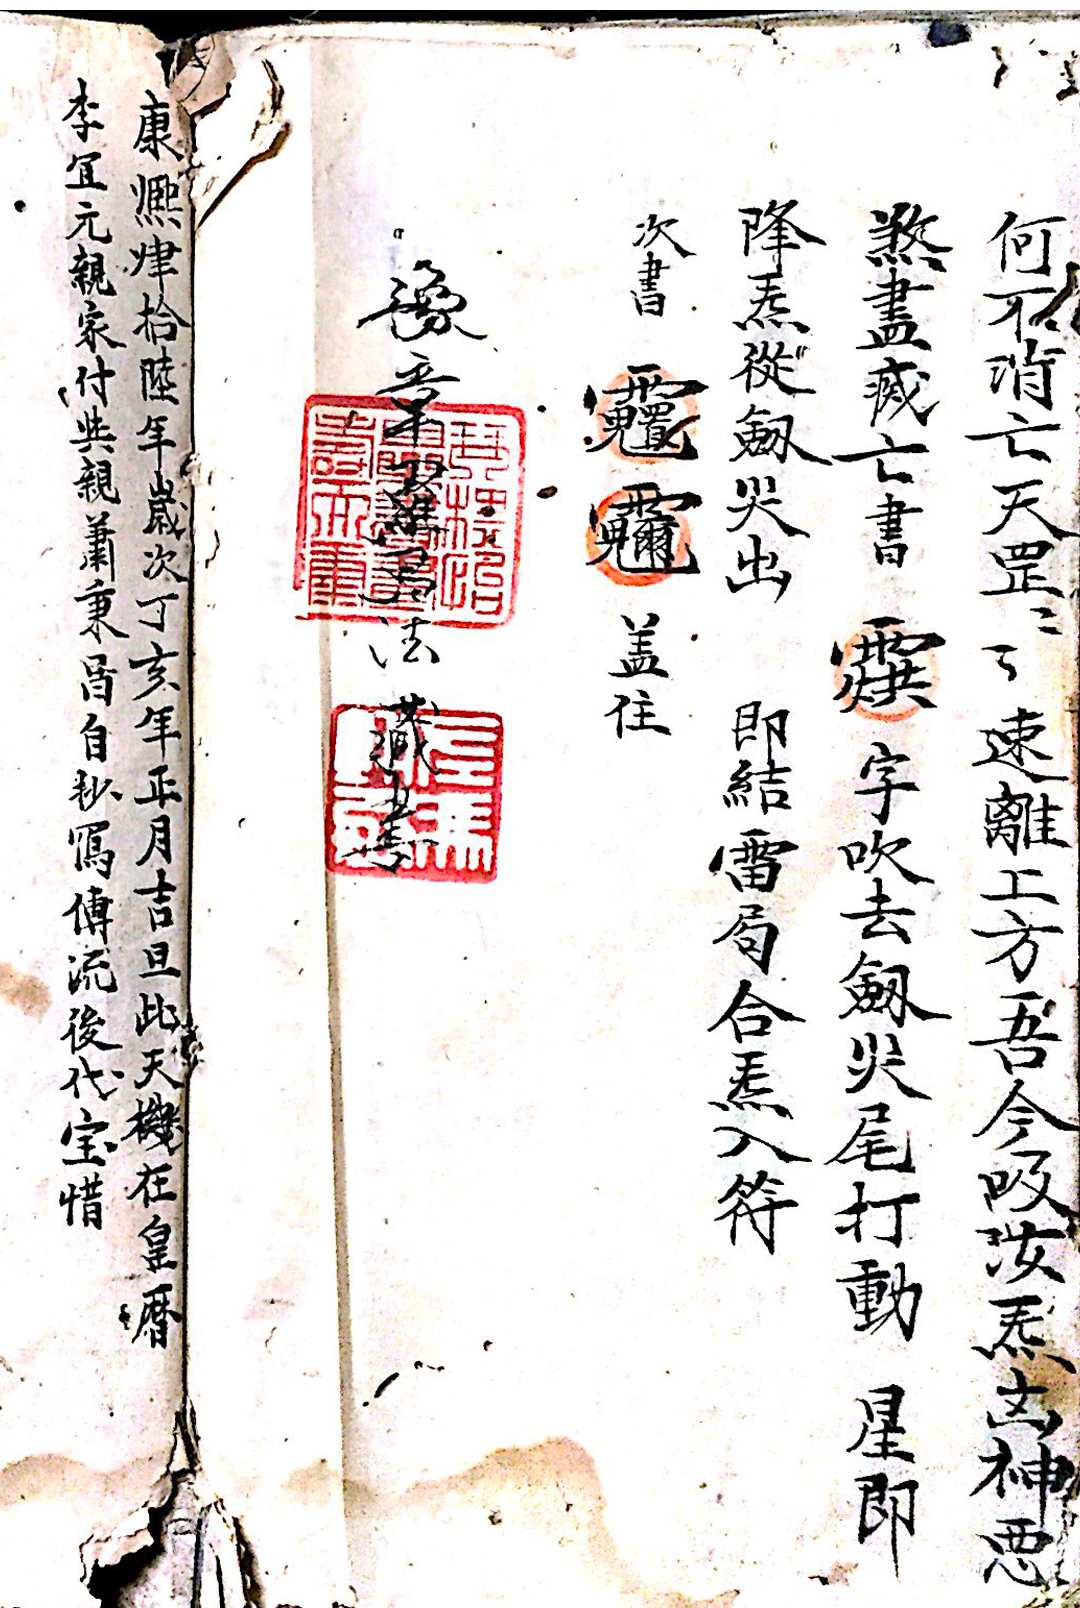 何不消亡天罡〻〻速離上方吾今吸汝炁凶神惡
煞盡滅亡書 字吹去劔尖尾打動 星即
降炁從劔尖出 即結雷局合炁入符
次書 盖住
法
康熈肆拾陸年歲次丁亥年正月吉旦此天機在皇曆
李宜元親家付與親蕭秉昌自抄寫傳流後代宝惜